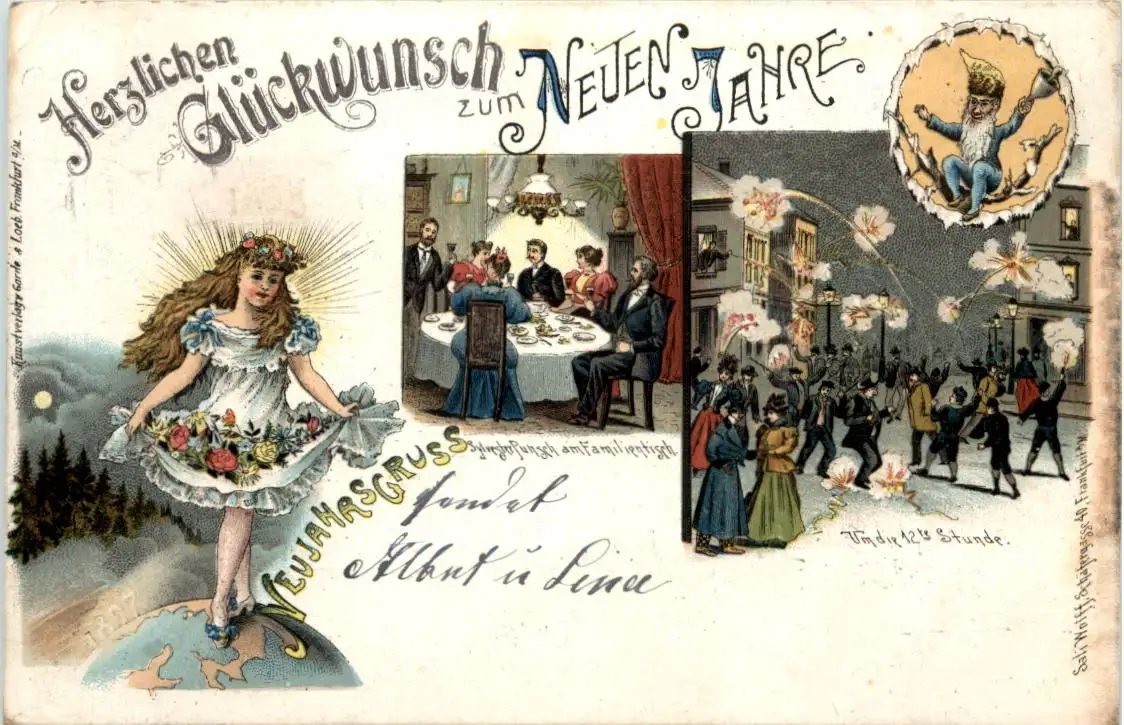 Herzlichen
Glückwunsch
zum NEUEN JAHRE.
Kunstverlag v. Garde & Loeb. Frankfurt a/M.
NEUJAHRSGRUSS
Sylvester Punsch am Familientisch
Um die 12te Stunde.
sendet
Albert u Lina
1897
Sali Wolff, Schäfergasse 40, Frankfurt a/M.